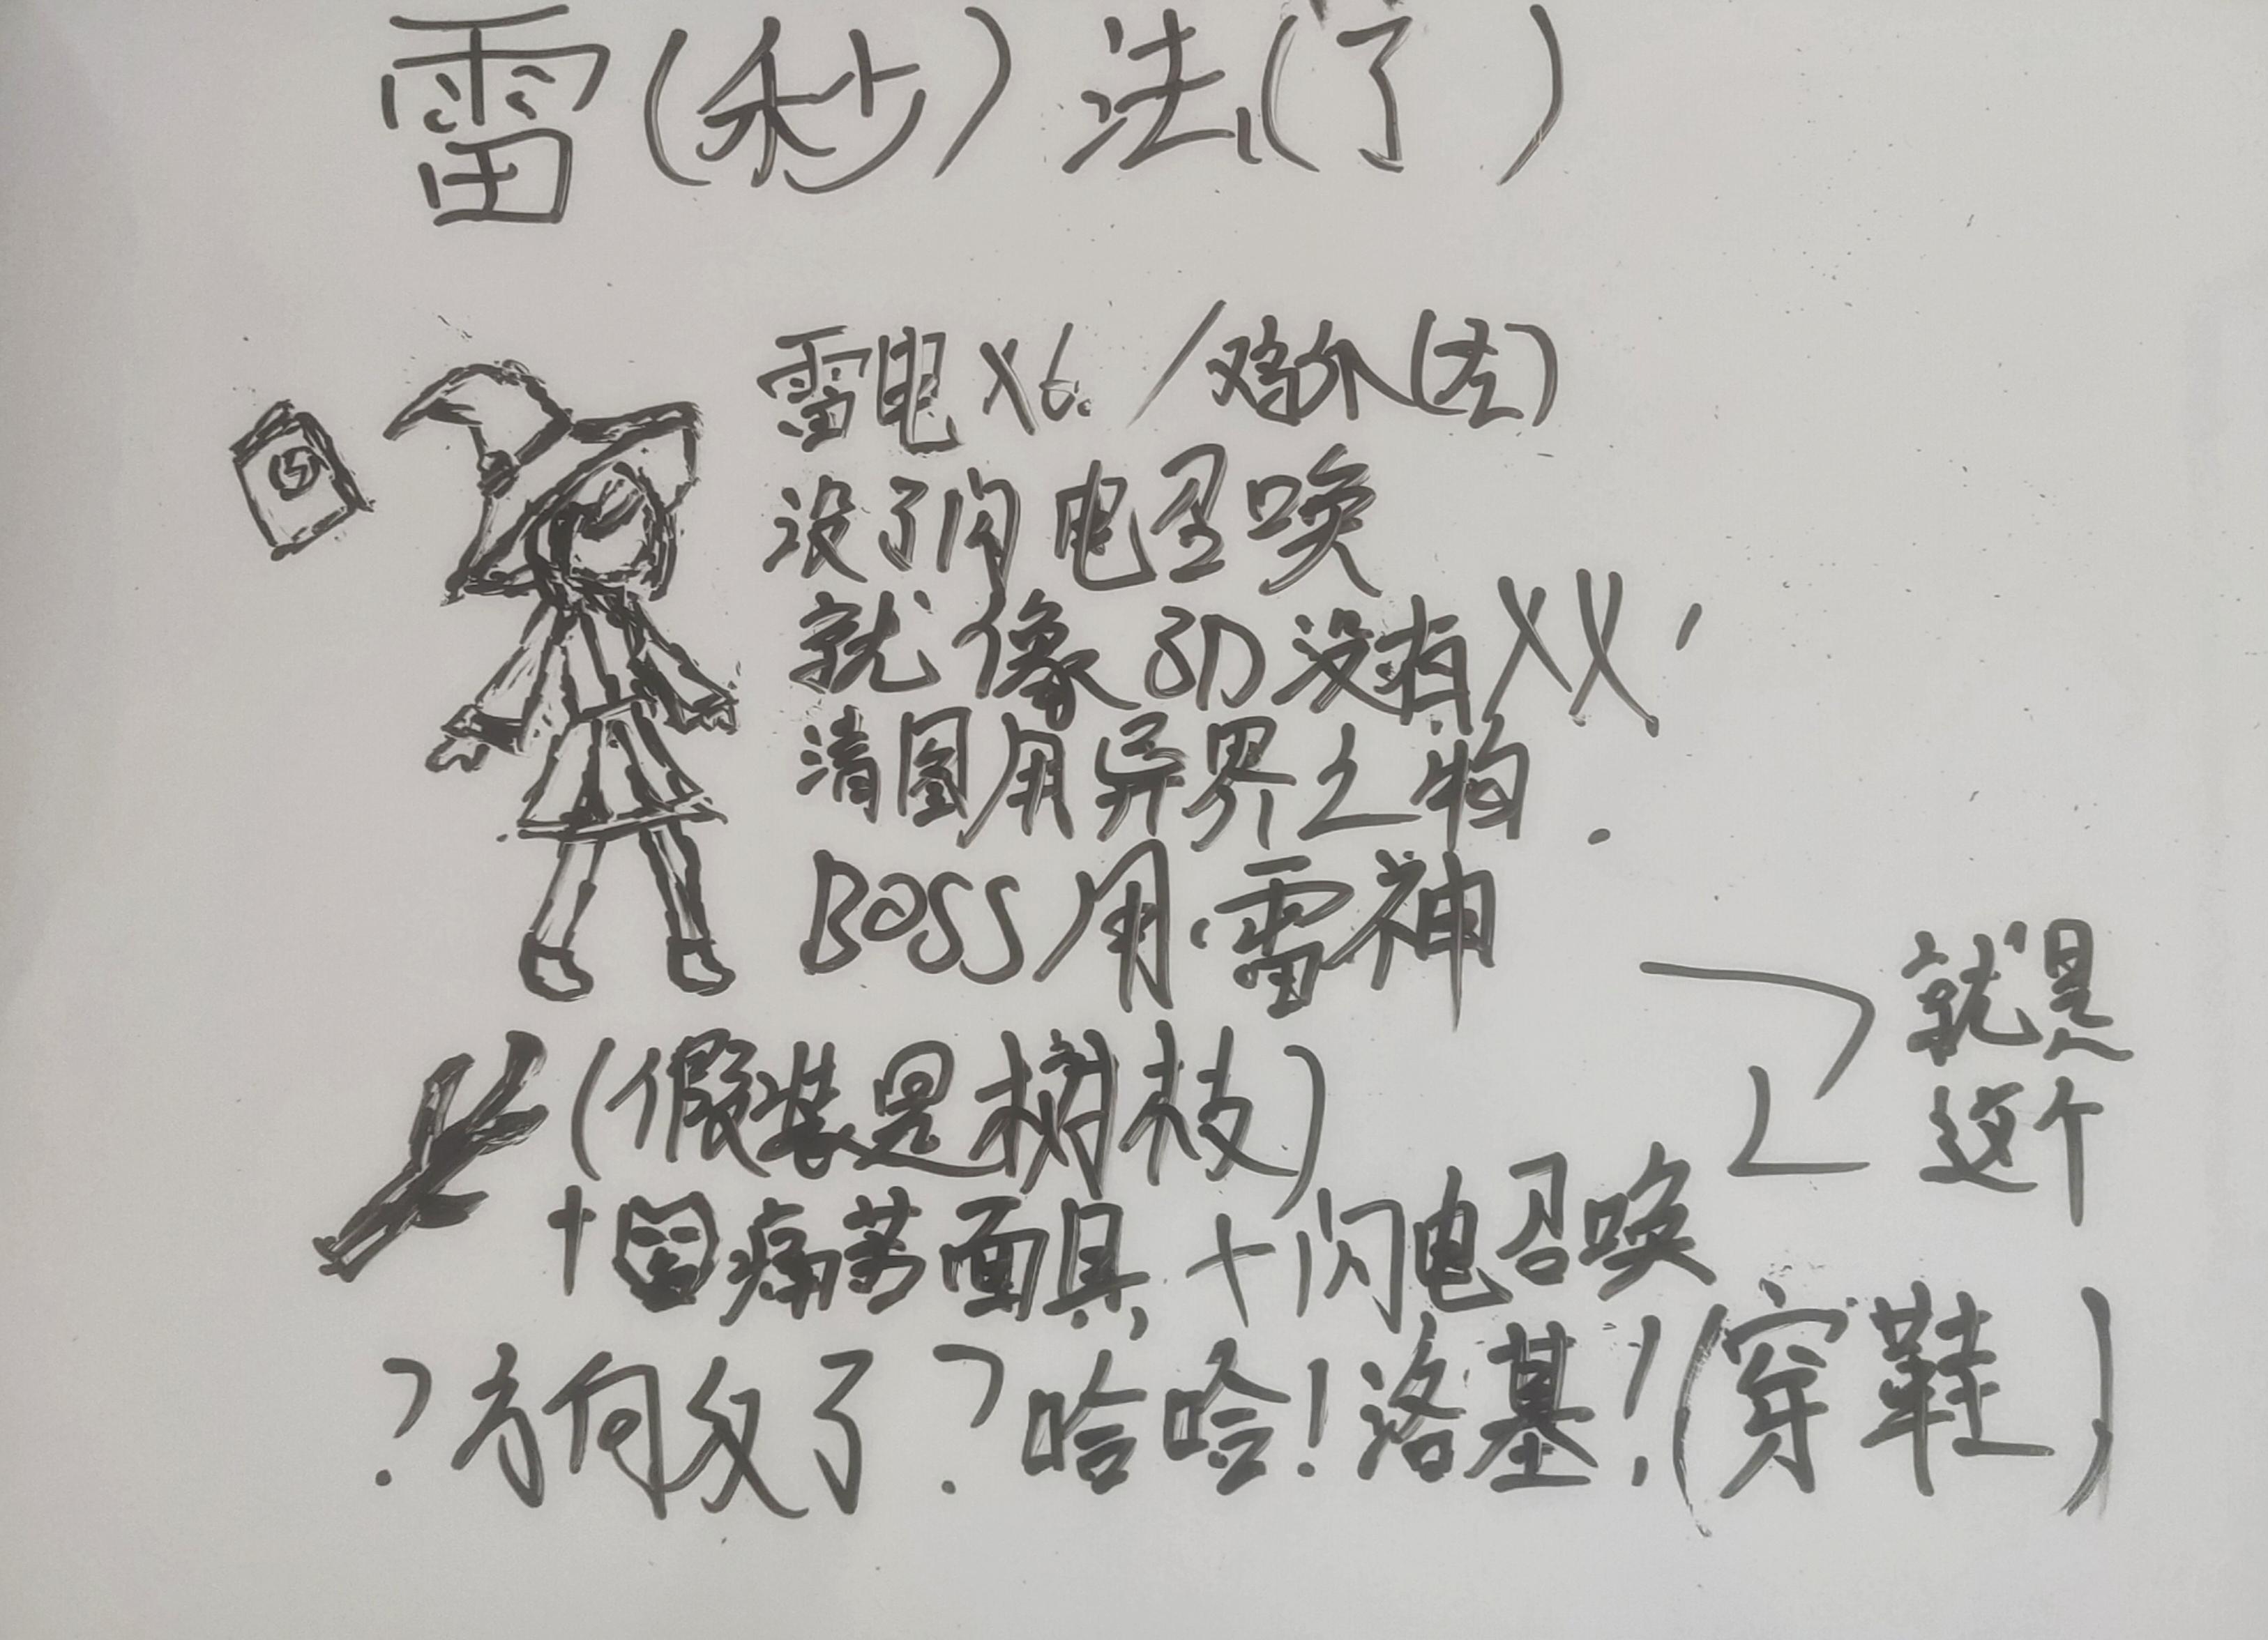 雷(秒)法(了)
雷电X6。/鸡尔(左)
没了闪电召唤
就像3D没有XX,
清图用异界之物.
BOSS用雷神
就是
这个
(假装是树枝)
+痛苦面具+闪电召唤
?方向反了?哈哈!洛基!(穿鞋)